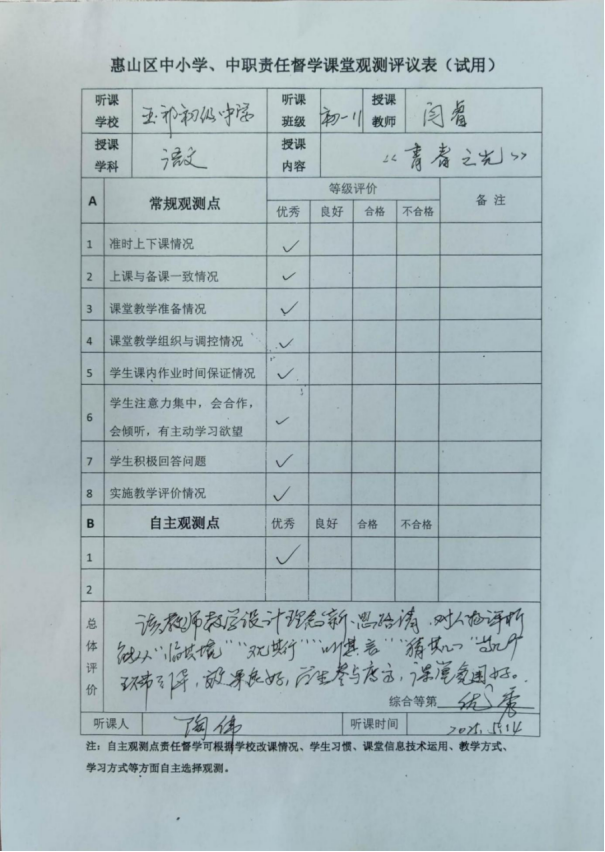 惠山区中小学、中职责任督学课堂观测评议表（试用）
听课学校 玉祁初级中学 听课班级 初一11 授课教师 闫睿
授课学科 语文 授课内容 《青春之光》
A 常规观测点 等级评价 备注
优秀 良好 合格 不合格
1 准时上下课情况 ✓
2 上课与备课一致情况 ✓
3 课堂教学准备情况 ✓
4 课堂教学组织与调控情况 ✓
5 学生课内作业时间保证情况 ✓
6 学生注意力集中，会合作，
会倾听，有主动学习欲望 ✓
7 学生积极回答问题 ✓
8 实施教学评价情况 ✓
B 自主观测点 优秀 良好 合格 不合格
1 ✓
2
总体评价
该教师教学设计理念新、思路清，对人物评析
能从“临其境”“观其行”“听其言”“猜其心”等几个
环节引导，效果良好，学生参与度高，课堂氛围好。
综合等第 优秀
听课人 陶伟 听课时间 2025.5.14
注：自主观测点责任督学可根据学校改课情况、学生习惯、课堂信息技术运用、教学方式、
学习方式等方面自主选择观测。